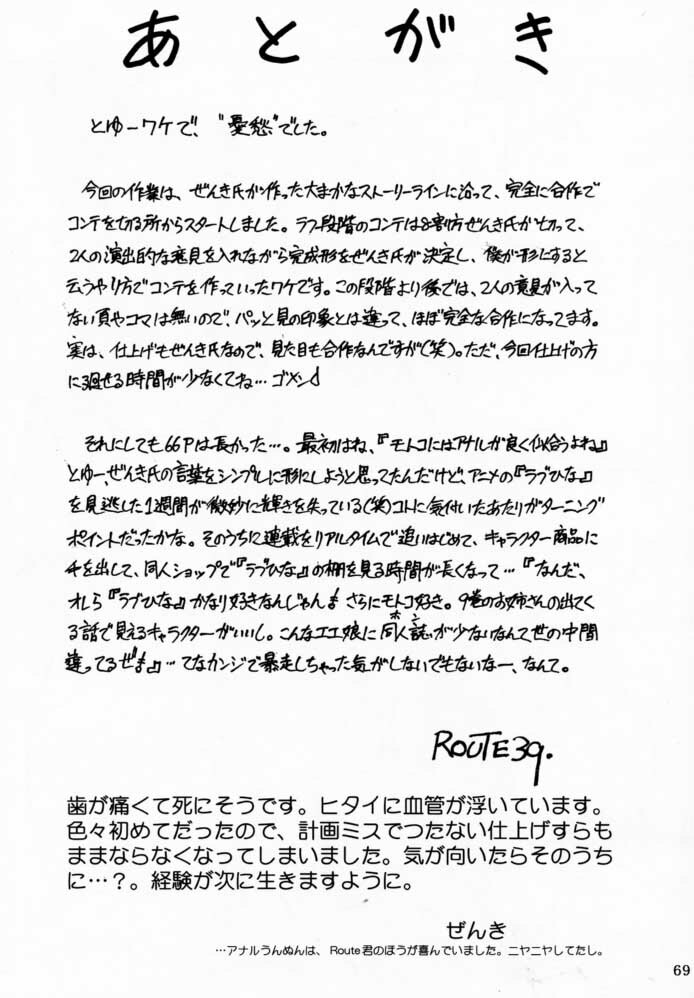 あとがき
とゆーワケで、“憂愁”でした。
今回の作業は、ぜんき氏が作った大まかなストーリーラインに沿って、完全に合作で
コンテを切る所からスタートしました。ラフ段階のコンテは8割方ぜんき氏が切って、
2人の演出的な意見を入れながら完成形をぜんき氏が決定し、僕が形にすると
云うやり方でコンテを作っていったワケです。この段階より後では、2人の意見が入って
ない頁やコマは無いので、パッと見の印象とは違って、ほぼ完全な合作になってます。
実は、仕上げもぜんき氏なので、見た目も合作なんですが(笑)。ただ、今回仕上げの方
に廻せる時間が少なくてね…ゴメン
それにしても66Pは長かった…。最初はね、『モトコにはアナルが良く似合うよね』
とゆー、ぜんき氏の言葉をシンプルに形にしようと思ってたんだけど、アニメの『ラブひな』
を見逃した1週間が微妙に輝きを失っている(笑)コトに気付いたあたりがターニング
ポイントだったかな。そのうちに連載をリアルタイムで追いはじめて、キャラクター商品に
手を出して、同人ショップで『ラブひな』の棚を見る時間が長くなって…『なんだ、
オレら『ラブひな』かなり好きなんじゃん!さらにモトコ好き。9巻のお姉さんの出てく
る話で見えるキャラクターがいいし。こんなエエ娘に同人誌ホンが少ないなんて世の中間
違ってるぜ!』…てなカンジで暴走しちゃった気がしないでもないなー、なんて。
ROUTE39.
歯が痛くて死にそうです。ヒタイに血管が浮いています。
色々初めてだったので、計画ミスでつたない仕上げすらも
ままならなくなってしまいました。気が向いたらそのうち
に…?。経験が次に生きますように。
ぜんき
…アナルうんぬんは、Route君のほうが喜んでいました。ニヤニヤしてたし。
69